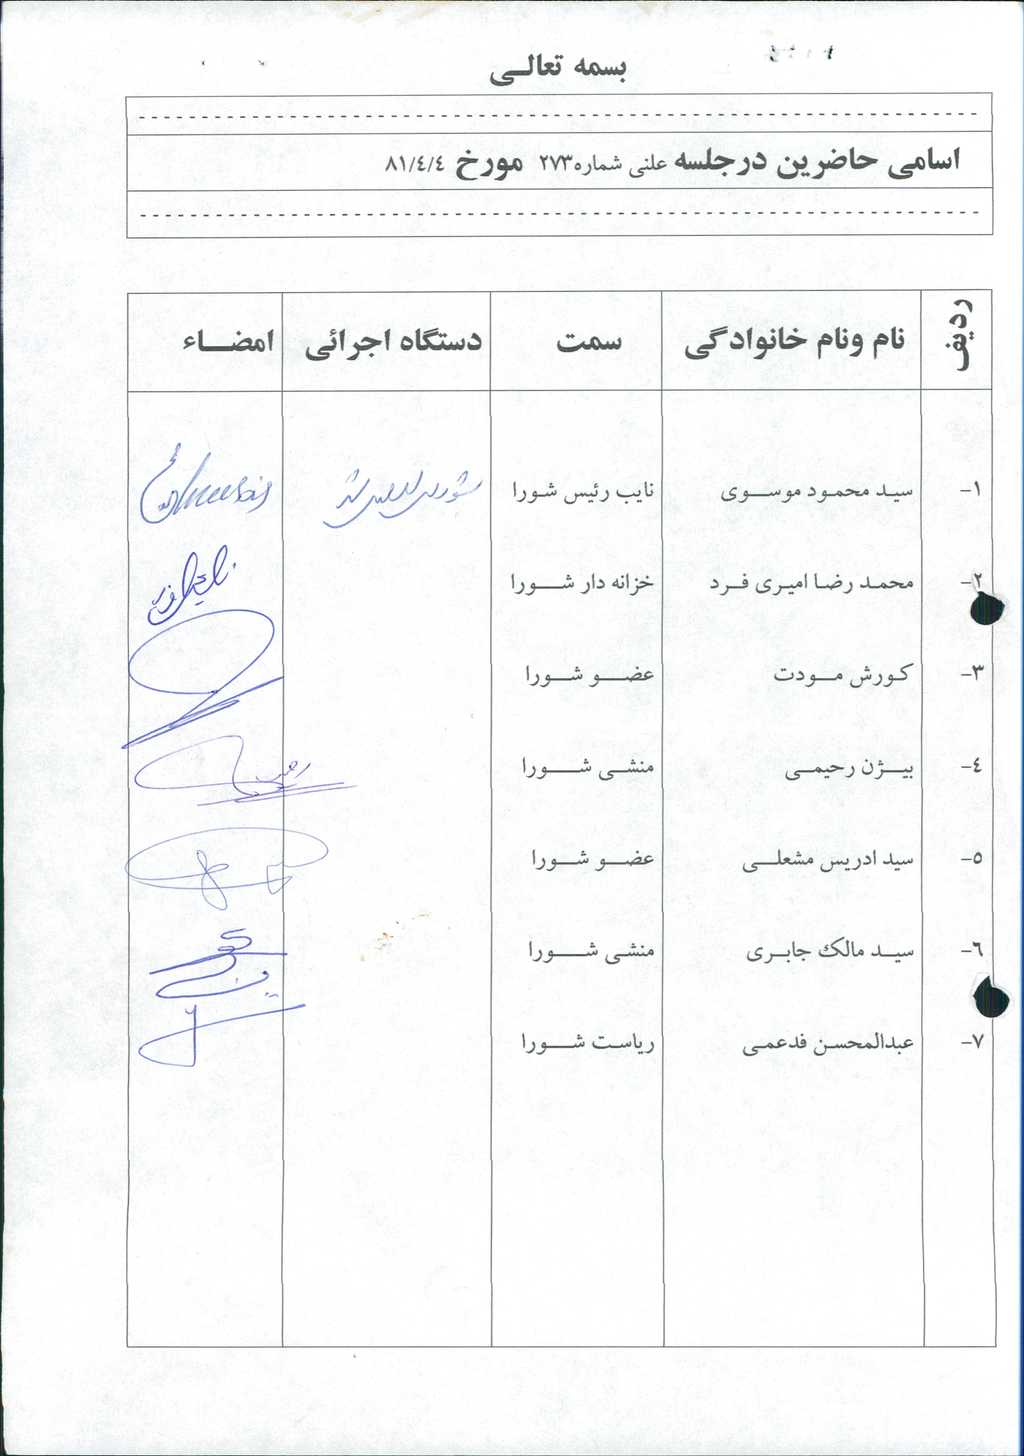 بسمه تعالی
اسامی حاضرین درجلسه علنی شماره ۲۷۳ مورخ ۸۱/٤/٤
ردیف نام ونام خانوادگی سمت دستگاه اجرائی امضاء
۱- سید محمود موسوی نایب رئیس شورا شورای اسلامی شهر
۲- محمد رضا امیری فرد خزانه دار شورا
۳- کورش مودت عضو شورا
٤- بیژن رحیمی منشی شورا
۵- سید ادریس مشعلی عضو شورا
٦- سید مالک جابری منشی شورا
۷- عبدالمحسن فدعمی ریاست شورا